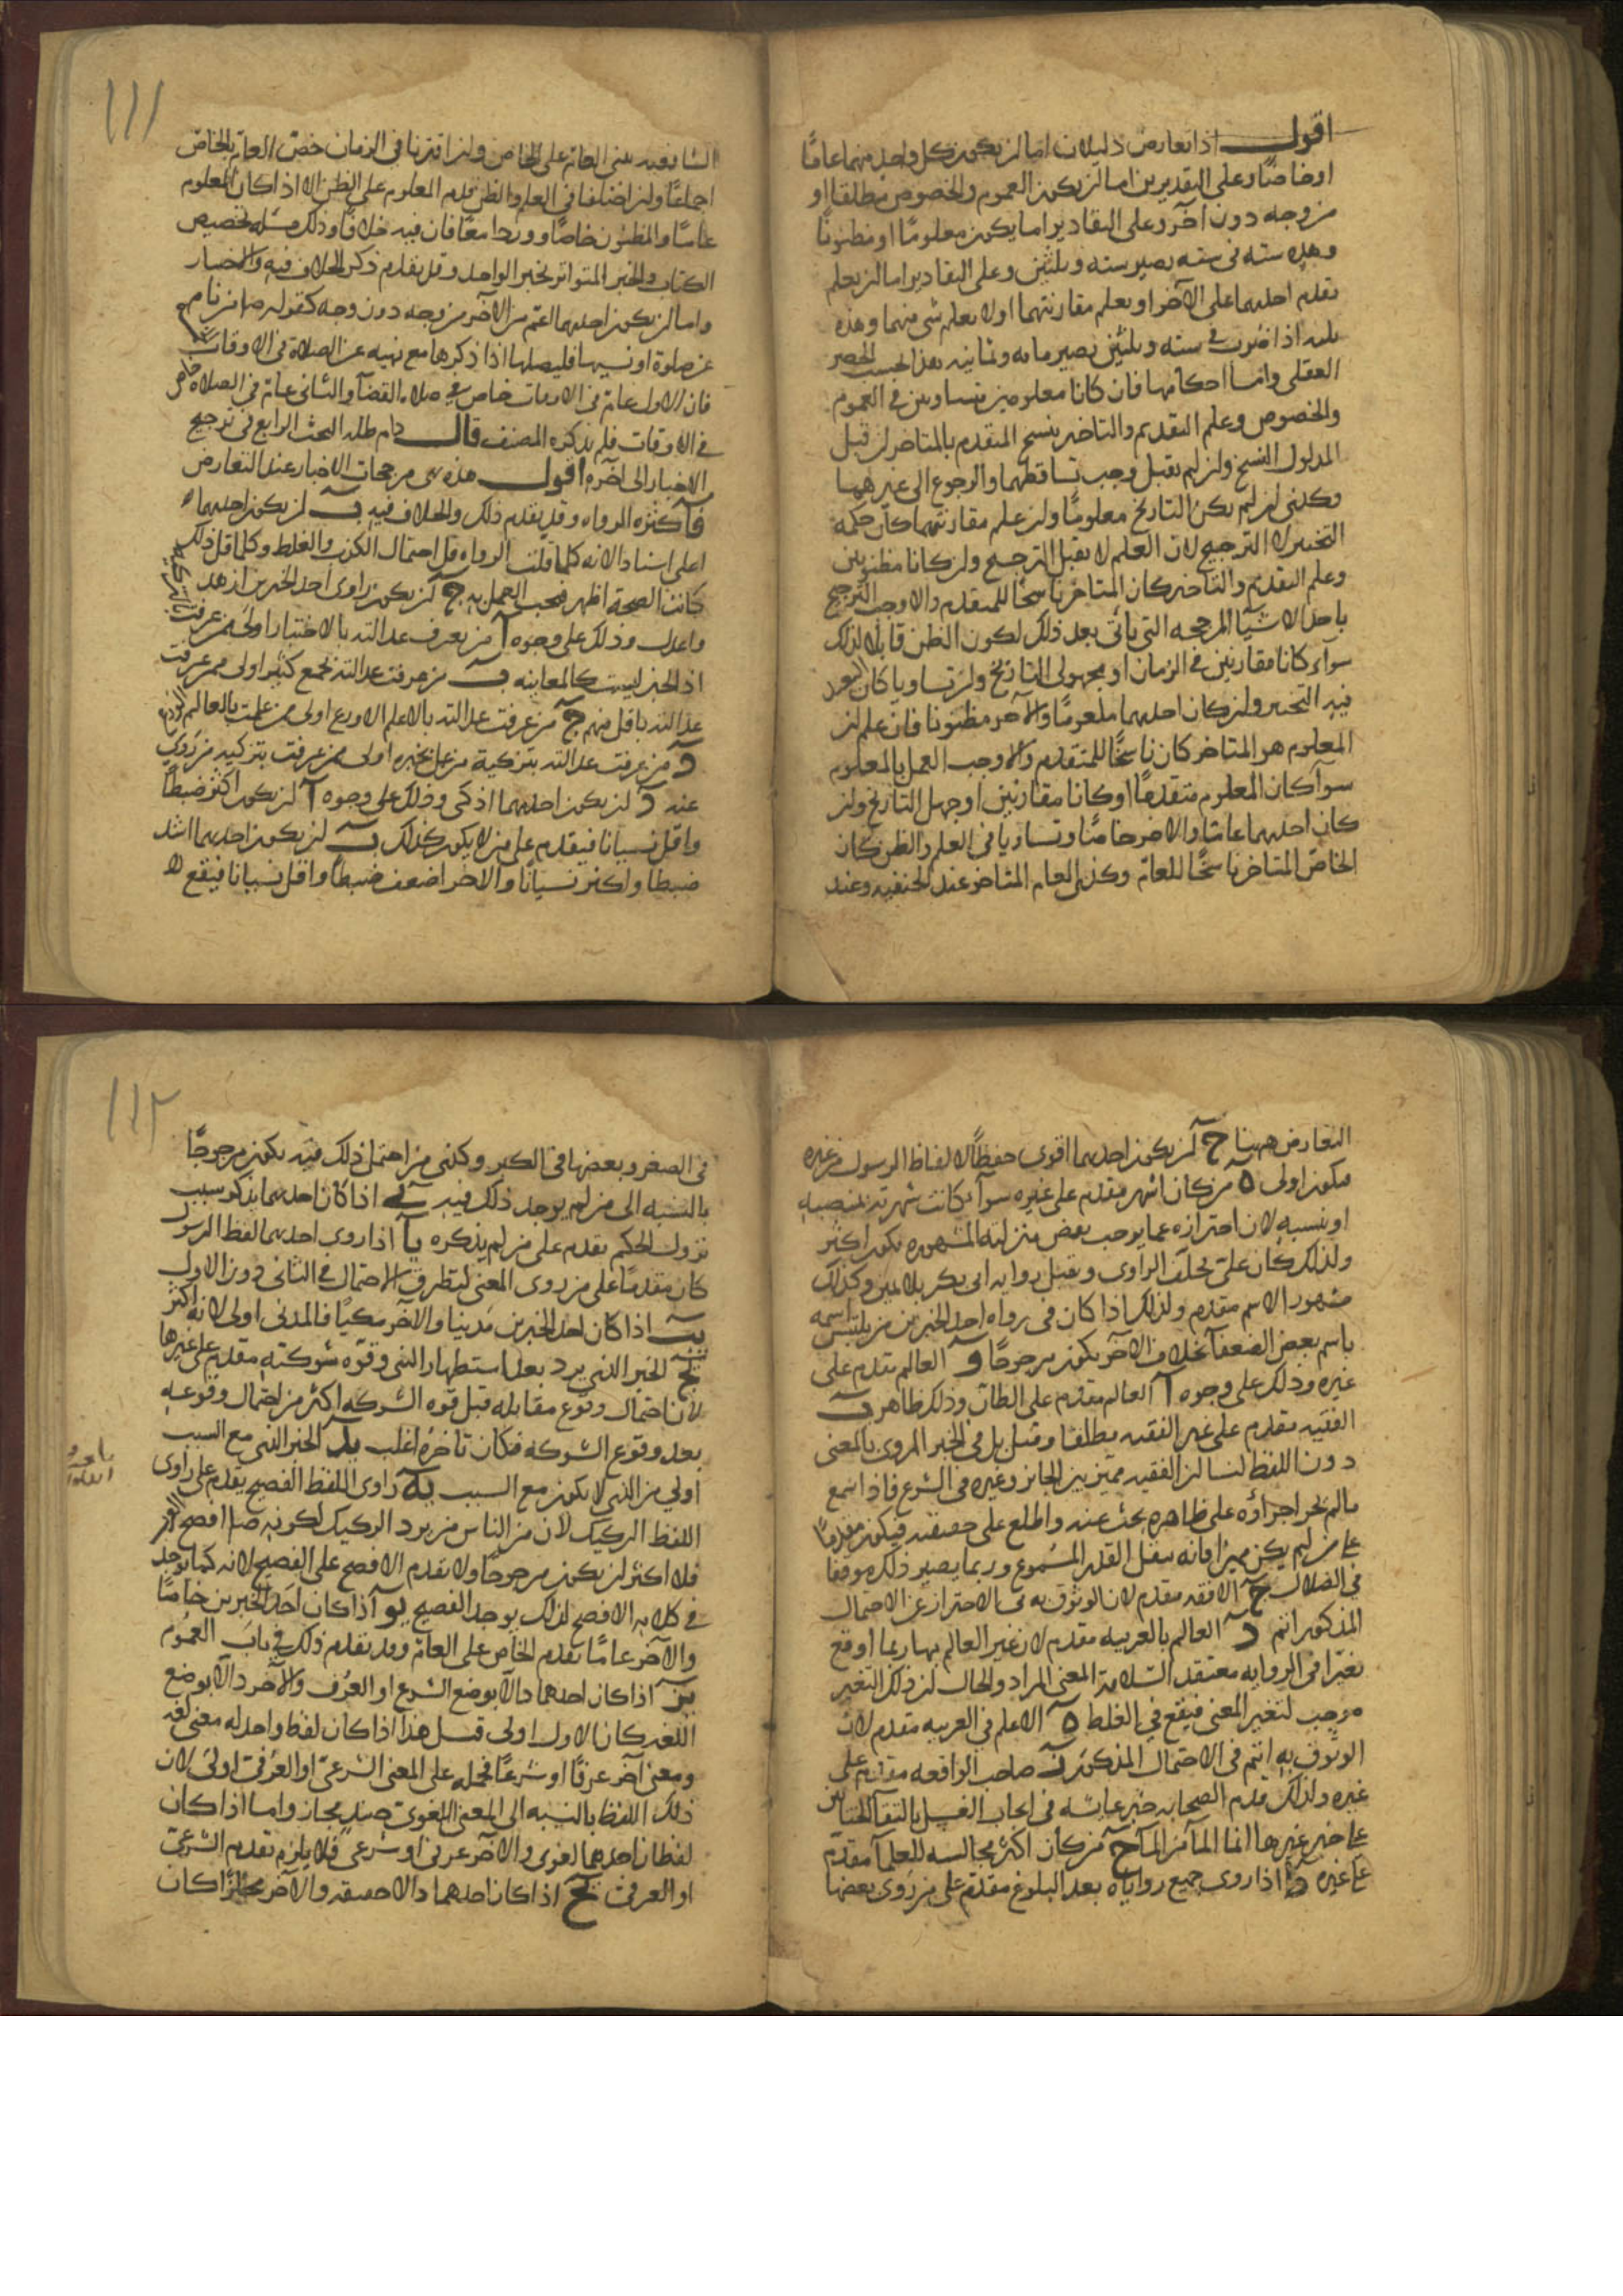 اقول اذا تعارض دليلان اما ان يكون كل واحد منهما عامًا
او خاصًا وعلى التقديرين اما ان يكون العموم والخصوص مطلقا او
من وجه دون آخر وعلى التقادير اما يكون معلومًا او مظنونًا
وهذه سته فى سته يصير سته وثلثين وعلى التقادير اما ان يعلم
تقدم احدهما على الآخر او يعلم مقارنتهما او لا يعلم شى منهما وهذه
ثلثه اذا ضربت فى سته وثلثين يصير مايه وثمانيه هذا بحسب الحصر
العقلى واما احكامها فان كانا معلومين متساويين فى العموم
والخصوص وعلم التقديم والتاخير ينسخ المتقدم بالمتاخر ان قبل
المدلول النسخ وان لم يقبل وجب تساقطهما والرجوع الى غيرهما
وكذى ان لم يكن التاريخ معلومًا وان علم مقارنتهما كان حكمه
التخيير لا الترجيح لان العلم لا يقبل الترجيح وان كانا مظنونين
وعلم التقديم والتاخير كان المتاخر ناسخًا للمتقدم والا وجب الترجيح
باحد الاشيآ المرجحه التى ياتى بعد ذلك لكون الظن قابلا لذلك
سوآء كانا مقارنين فى الزمان او مجهولى التاريخ وان تساويا كان
فيه التخيير وان كان احدهما معلومًا والآخر مظنونا فان علم ان
المعلوم هو المتاخر كان ناسخًا للمتقدم والا وجب العمل بالمعلوم
سوآ كان المعلوم متقدمًا او كانا مقارنين او جهل التاريخ وان
كان احدهما عامًا والاخر خاصًا وتساويا فى العلم والظن كان
الخاص المتاخر ناسخًا للعام وكذى العام المتاخر عند الحنفيه وعند
١١١
الشافعيه يبنى العام على الخاص وان اقترنا فى الزمان خص العام بالخاص
اجماعًا وان اختلفا فى العلم والظن قدم المعلوم على الظن الا اذا كان المعلوم
عامًا والمظنون خاصًا ووردا معًا فان فيه خلافًا وذلك مسئله تخصيص
الكتاب والخبر المتواتر بخبر الواحد وقد تقدم ذكر الخلاف فيه والاختيار
واما ان يكون احدهما اعم من الآخر من وجه دون وجه كقوله صلم من نام
عن صلوة او نسيها فليصلها اذا ذكرها مع نهيه عن الصلاة فى الاوقات
فان الاول عام فى الاوقات خاص فى صلاه القضآ والثانى عام فى الصلاه خاص
فى الاوقات فلم يذكره المصنف قال دام ظله البحث الرابع فى ترجيح
الاخبار الى آخره اقول هذه هى مرجحات الاخبار عند التعارض
فآ كثره الرواه وقد تقدم ذلك والخلاف فيه ب ان يكون احدهما
اعلى اسنادا لانه كلما قلت الرواه قل احتمال الكذب والغلط وكلما قل ذلك
كانت الصحة اظهر فيجب العمل به ج ان يكون راوى احد الخبرين ازهد
واعدل وذلك على وجوه آ من يعرف عدالته بالاختبار اولى ممن عرفت بالتزكيه
اذ الخبر ليست كالمعاينه ب من عرفت عدالته بجمع كثير اولى ممن عرفت
عدالته باقل منهم ج من عرفت عدالته بالاعلم الاورع اولى ممن علمت بالعالم الورع
د من عرفت عدالته بتزكية من عمل بخبره اولى ممن عرفت بتزكيه من روى
عنه د ان يكون احدهما اذكى وذلك على وجوه آ ان يكون اكثر ضبطًا
واقل نسيانا فيقدم على من لا يكون كذلك ب ان يكون احدهما اشد
ضبطًا واكثر نسيانًا والاخر اضعف ضبطًا واقل نسيانا فيقع لا
التعارض ههنا ج ان يكون احدهما اقوى حفظًا لالفاظ الرسول من غيره
فيكون اولى ه من كان اشهر مقدم على غيره سوآء كانت شهرته لمنصبه
او نسبه لان احترازه عما يوجب بعض منزلته المشهوره يكون اكثر
ولذلك كان على يحلف الراوى ويقبل روايه ابى بكر بلا يمين وكذلك
مشهور الاسم مقدم ولذلك اذا كان فى رواه احد الخبرين من يلتبس اسمه
باسم بعض الضعفآ بخلاف الآخر يكون مرجوحًا و العالم يقدم على
غيره وذلك على وجوه آ العالم مقدم على الظان وذلك ظاهر ب
الفقيه مقدم على غير الفقيه مطلقا وقيل بل فى الخبر المروى بالمعنى
دون اللفظ لنا ان الفقيه مميز بين الجايز وغيره فى الشرع فاذا سمع
ما لم يجز اجراؤه على ظاهره بحث عنه واطلع على حقيقته فيكون مقدمًا
على من لم يكن مميزا فانه ينقل القدر المسموع وربما يصير ذلك موقعًا
فى الضلال ج الافقه مقدم لان الوثوق به فى الاحتراز عن الاحتمال
المذكور اتم د العالم بالعربيه مقدم لان غير العالم بها ربما اوقع
تغيرًا فى الروايه معتقد السلامة المعنى المراد والحال ان ذلك التغير
موجب لتغير المعنى فيقع فى الغلط ه الاعلم فى العربيه مقدم لان
الوثوق به اتم فى الاحتمال المذكور ز صاحب الواقعه مقدم على
غيره ولذلك قدم الصحابه خبر عايشه فى ايجاب الغسل بالتقآ الختانين
على خبر غيرها انما المآ من المآ ح من كان اكثر مجالسه للعلمآ مقدم
على غيره ط اذا روى جميع رواياته بعد البلوغ مقدم على من روى بعضها
١١٢
فى الصغر وبعضها فى الكبر وكذى من احتمل ذلك فيه يكون مرجوحًا
بالنسبه الى من لم يوجد ذلك فيه ى اذا كان احدهما يذكر سبب
نزول الحكم يقدم على من لم يذكره يآ اذا روى احدهما لفظ الرسول
كان مقدمًا على من روى المعنى لتطرق الاحتمال فى الثانى دون الاول
يب اذا كان احد الخبرين مدنيا والآخر مكيًا فالمدنى اولى لانه اكثر
يج الخبر الذى يرد بعد استظهار النبى وقوه شوكته مقدم على غيرها
لان احتمال وقوع مقابله قبل قوه الشوكه اكثر من احتمال وقوعه
بعد وقوع الشوكه فكان تاخره اغلب يد الخبر الذى مع السبب
اولى من الذى لا يكون مع السبب يه راوى اللفظ الفصيح يقدم على راوى
اللفظ الركيك لان من الناس من يرد الركيك لكونه صلم افصح
فلا اكثر ان يكون مرجوحًا ولا يقدم الافصح على الفصيح لانه كما يوجد
فى كلامه الافصح لذلك يوجد الفصيح يو اذا كان احد الخبرين خاصًا
والآخر عامًا يقدم الخاص على العام وقد تقدم ذلك فى باب العموم
يز اذا كان احدهما دالا بوضع الشرع او العرف والآخر دالا بوضع
اللغه كان الاول اولى قيل هذا اذا كان لفظ واحد له معنى لغه
ومعنى آخر عرفًا او شرعًا فحمله على المعنى الشرعى او العرفى اولى لان
ذلك اللفظ بالنسبه الى المعنى اللغوى حينئذٍ مجاز واما اذا كان
لفظان احدهما لغوى والآخر عرفى او شرعى فلا يلزم تقدم الشرعى
او العرفى يح اذا كان احدهما دالا حقيقه والآخر مجازًا كان